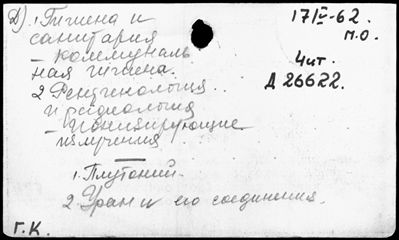 Д). 1. Гигиена и
санитария
- коммуналь
ная гигиена.
2 Рентгенология
и радиология
- Ионизирующие
излучения
1. Плутоний.
2. Уран и его соединения.
Г.К.
17/V-62.
М.О.
Чит.
Д 26622.